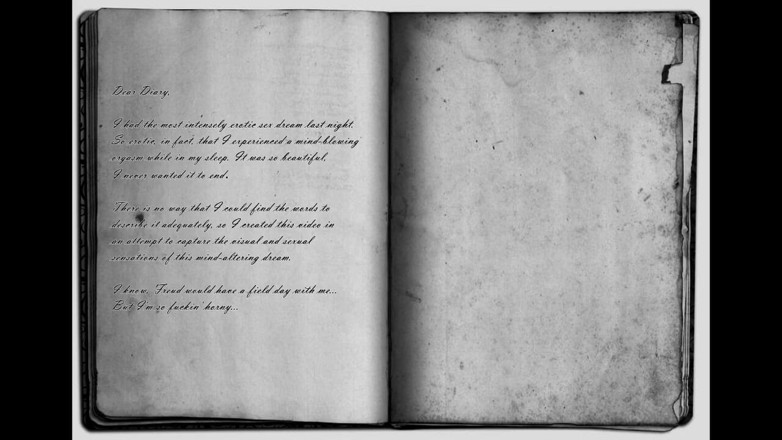 Dear Diary,
I had the most intensely erotic sex dream last night.
So erotic, in fact, that I experienced a mind-blowing
orgasm while in my sleep. It was so beautiful.
I never wanted it to end.
There is no way that I could find the words to
describe it adequately, so I created this video in
an attempt to capture the visual and sexual
sensations of this mind-altering dream.
I know, Freud would have a field day with me...
But I'm so fuckin' horny...